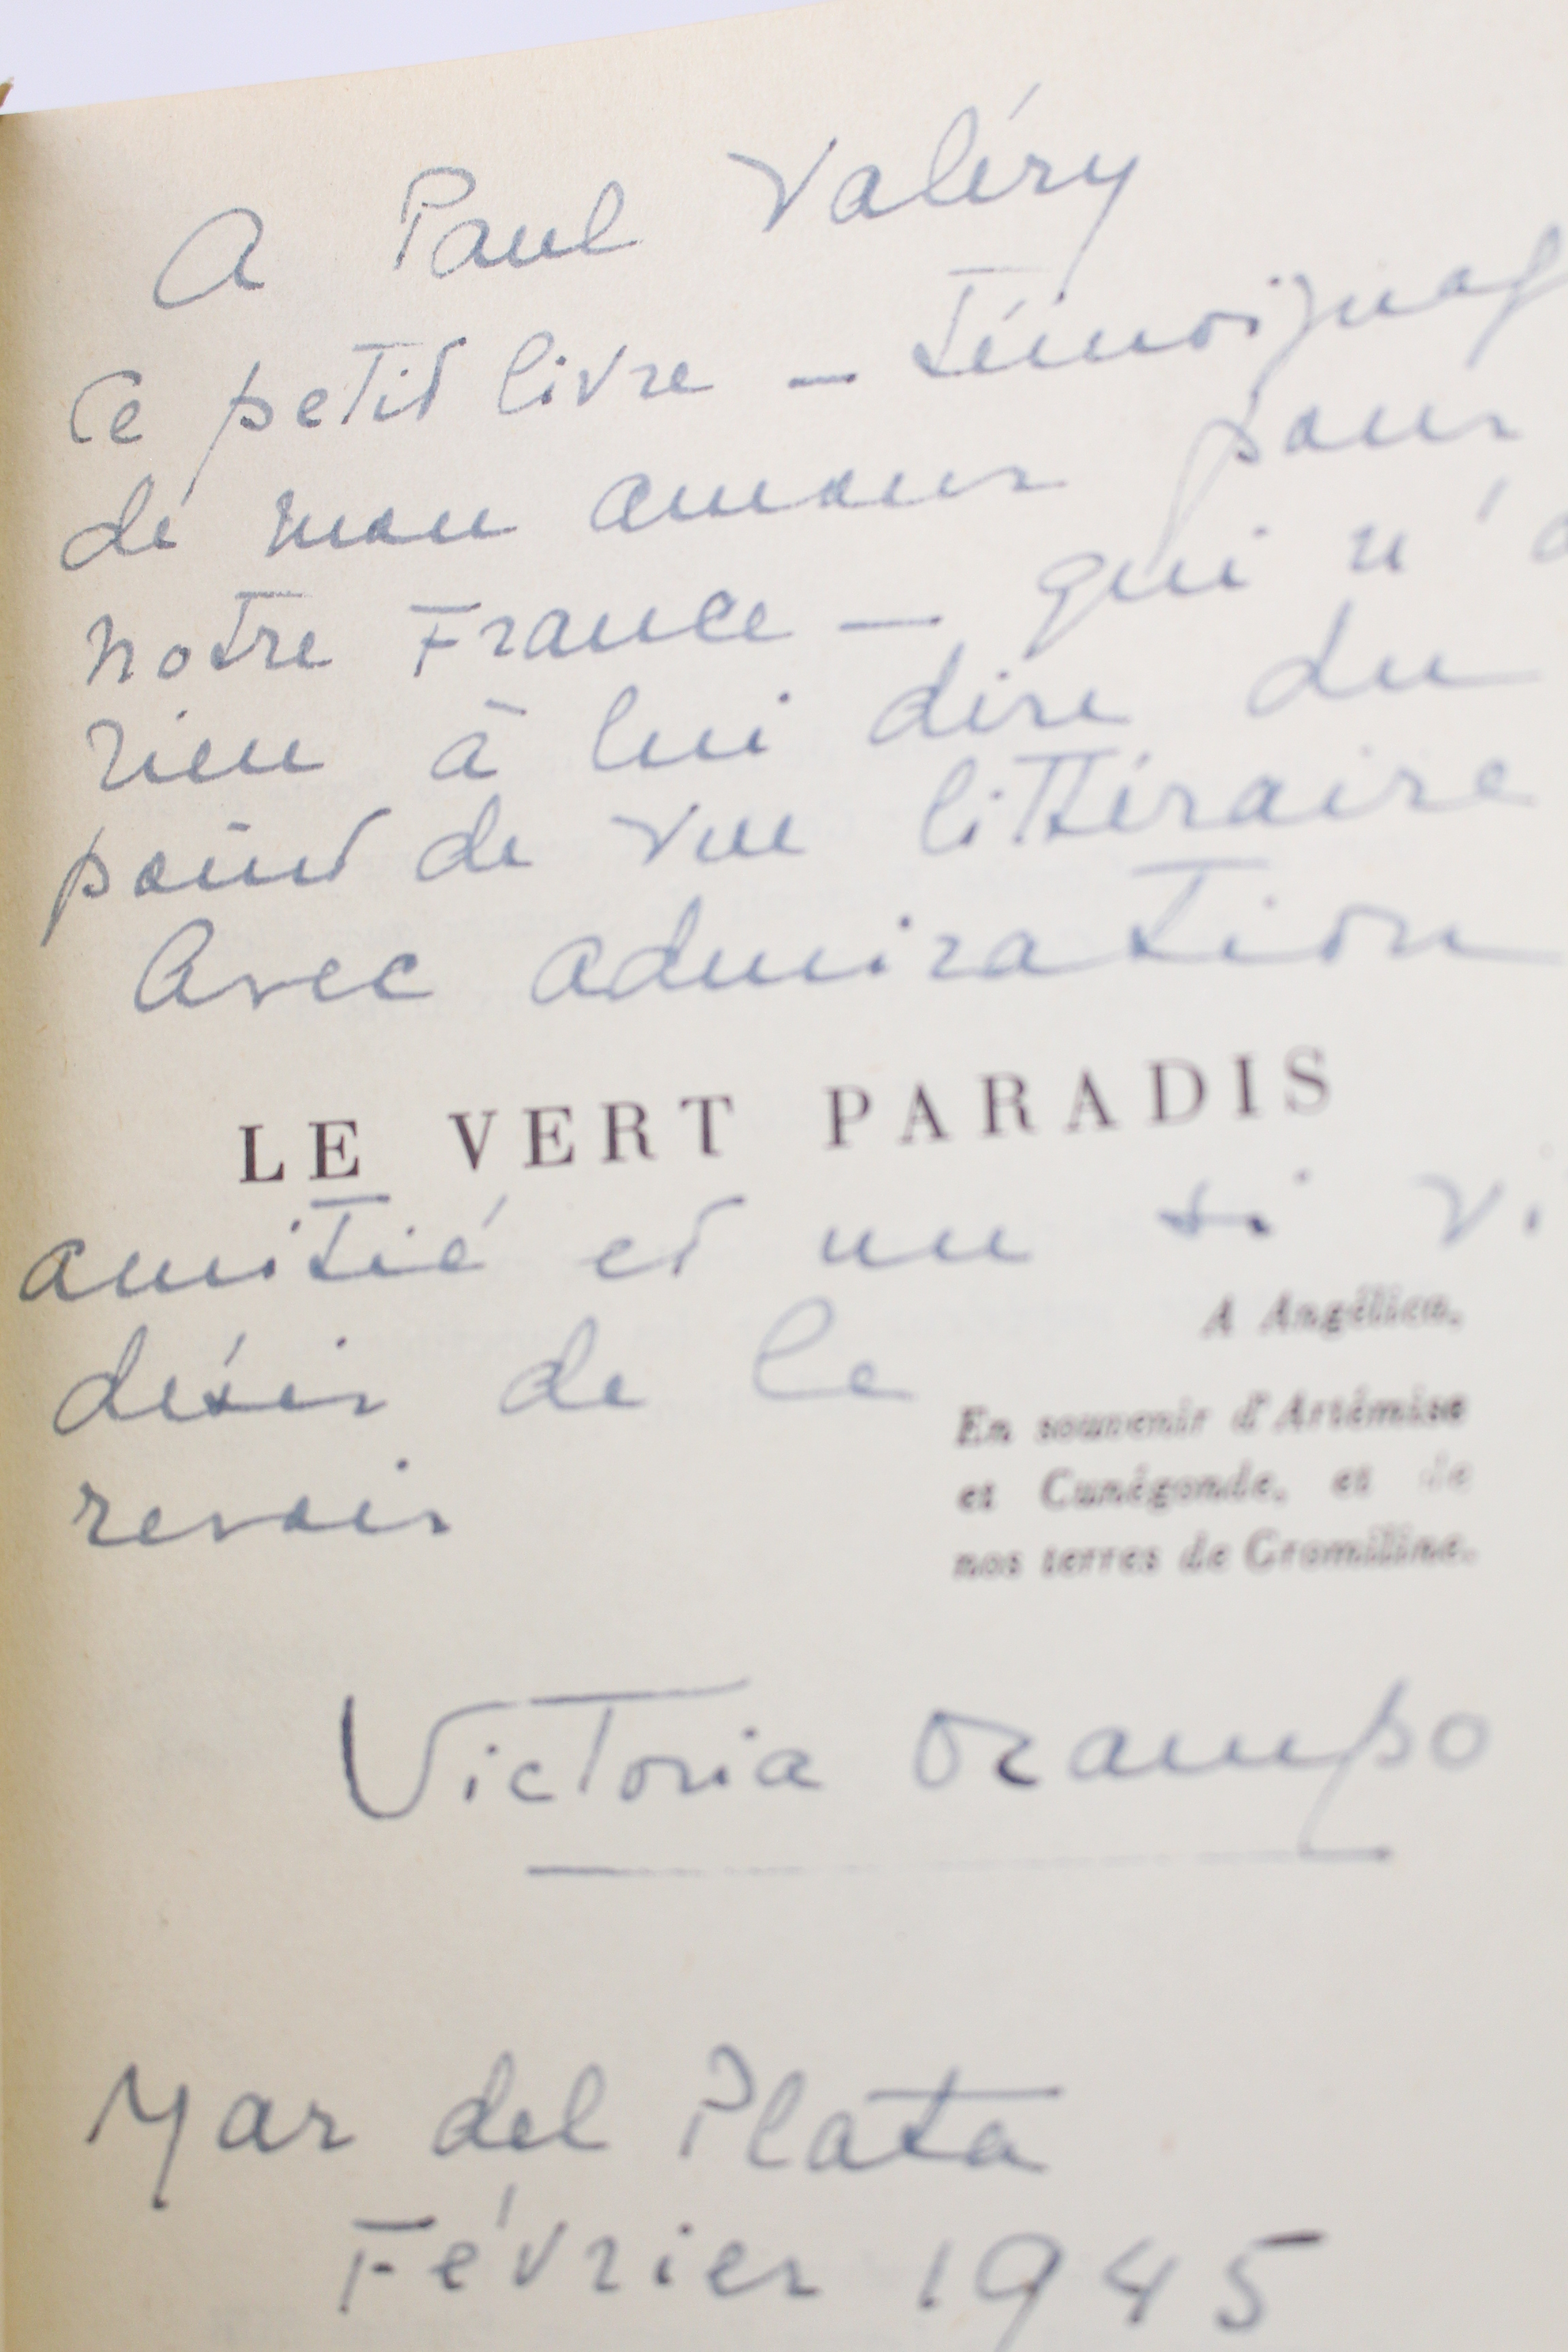 A Paul Valéry
Ce petit livre — témoignag
de mon amour pour
notre France — qui n'a
rien à lui dire du
point de vue littéraire
Avec admiration
LE VERT PARADIS
amitié et un si vi
désir de le
revoir
A Angélica,
En souvenir d'Artémise
et Cunégonde, et de
nos terres de Gromiline.
Victoria Ocampo
Mar del Plata
Février 1945